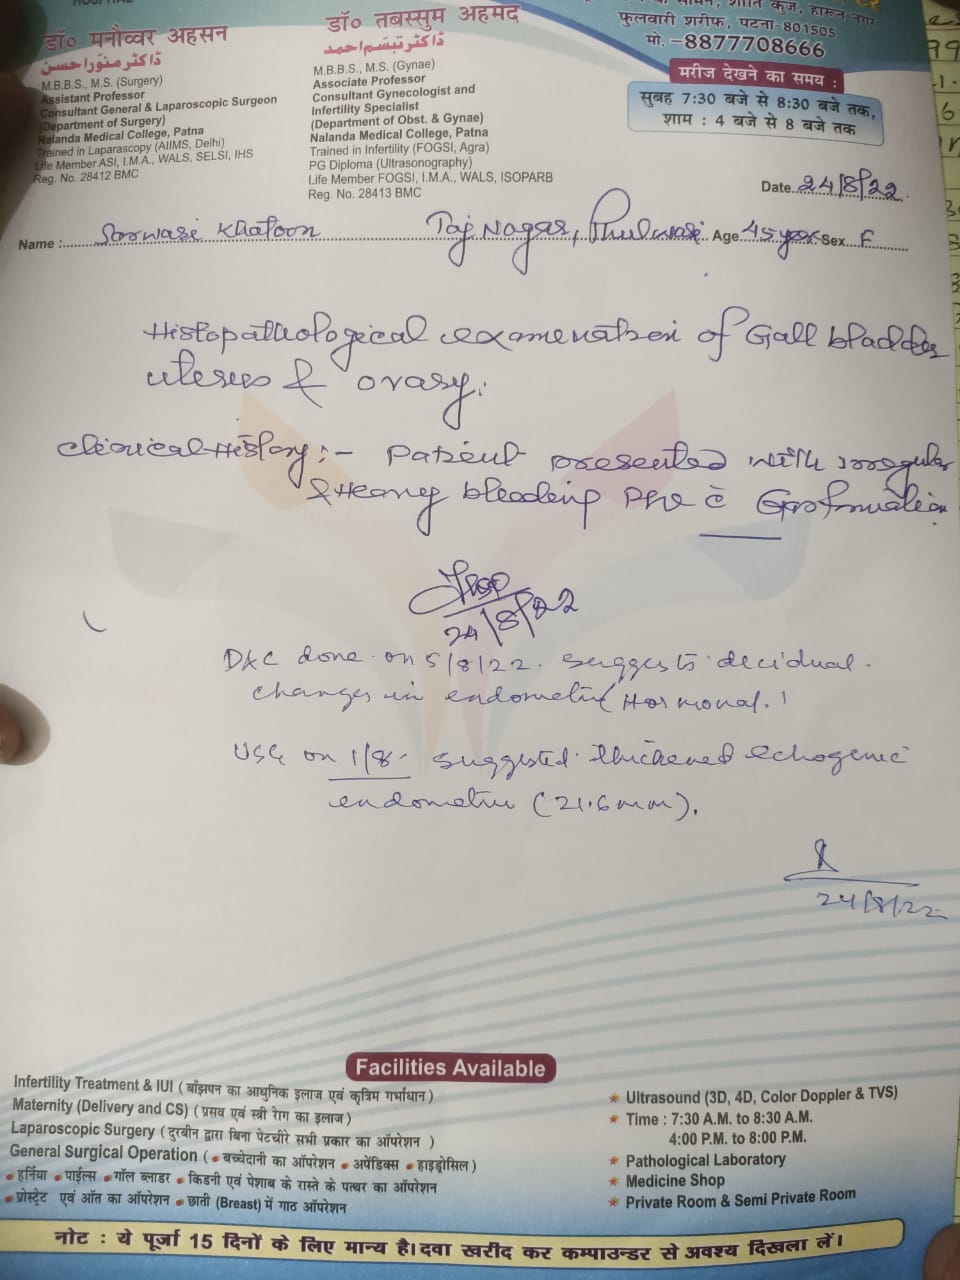 डॉ० मनौव्वर अहसन
ڈاکٹر منور احسن
M.B.B.S., M.S. (Surgery)
Assistant Professor
Consultant General & Laparoscopic Surgeon
(Department of Surgery)
Nalanda Medical College, Patna
Trained in Laparascopy (AIIMS, Delhi)
Life Member ASI, I.M.A., WALS, SELSI, IHS
Reg. No. 28412 BMC
डॉ० तबस्सुम अहमद
ڈاکٹر تبسّم احمد
M.B.B.S., M.S. (Gynae)
Associate Professor
Consultant Gynecologist and
Infertility Specialist
(Department of Obst. & Gynae)
Nalanda Medical College, Patna
Trained in Infertility (FOGSI, Agra)
PG Diploma (Ultrasonography)
Life Member FOGSI, I.M.A., WALS, ISOPARB
Reg. No. 28413 BMC
शांति कुंज, हारून नगर
फुलवारी शरीफ, पटना-801505
मो. -8877708666
मरीज देखने का समय :
सुबह 7:30 बजे से 8:30 बजे तक,
शाम : 4 बजे से 8 बजे तक
Date 24/8/22
Name : Sarwari Khatoon Taj Nagar, Phulwari Age 45 year Sex F
Histopathological examenation of Gall bladder
uterus & ovary.
Clinical History :- Patient presented with irregular
& Heavy bleeding P/V c̄ Gas formation
24/8/22
D&C done on 5/8/22. suggests decidual
changes in endometriᵐ Hormonal.
USG on 1/8 - suggested thickened echogenic
endometriᵐ (21.6 mm).
24/8/22
Facilities Available
Infertility Treatment & IUI ( बाँझपन का आधुनिक इलाज एवं कृत्रिम गर्भाधान )
Maternity (Delivery and CS) ( प्रसव एवं स्त्री रोग का इलाज )
Laparoscopic Surgery ( दुरबीन द्वारा बिना पेटचीरे सभी प्रकार का ऑपरेशन )
General Surgical Operation ( • बच्चेदानी का ऑपरेशन • अपेंडिक्स • हाइड्रोसिल )
• हर्निया • पाईल्स • गॉल ब्लाडर • किडनी एवं पेशाब के रास्ते के पत्थर का ऑपरेशन
• प्रोस्ट्रेट एवं आँत का ऑपरेशन • छाती (Breast) में गाठ ऑपरेशन
★ Ultrasound (3D, 4D, Color Doppler & TVS)
★ Time : 7:30 A.M. to 8:30 A.M.
4:00 P.M. to 8:00 P.M.
★ Pathological Laboratory
★ Medicine Shop
★ Private Room & Semi Private Room
नोट : ये पूर्जा 15 दिनों के लिए मान्य है। दवा खरीद कर कम्पाउन्डर से अवश्य दिखला लें।